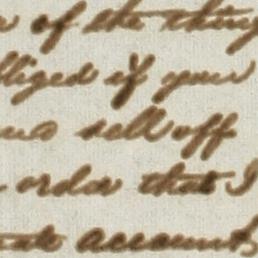 of the thing
lliged if your
sell off
order that I
accounts